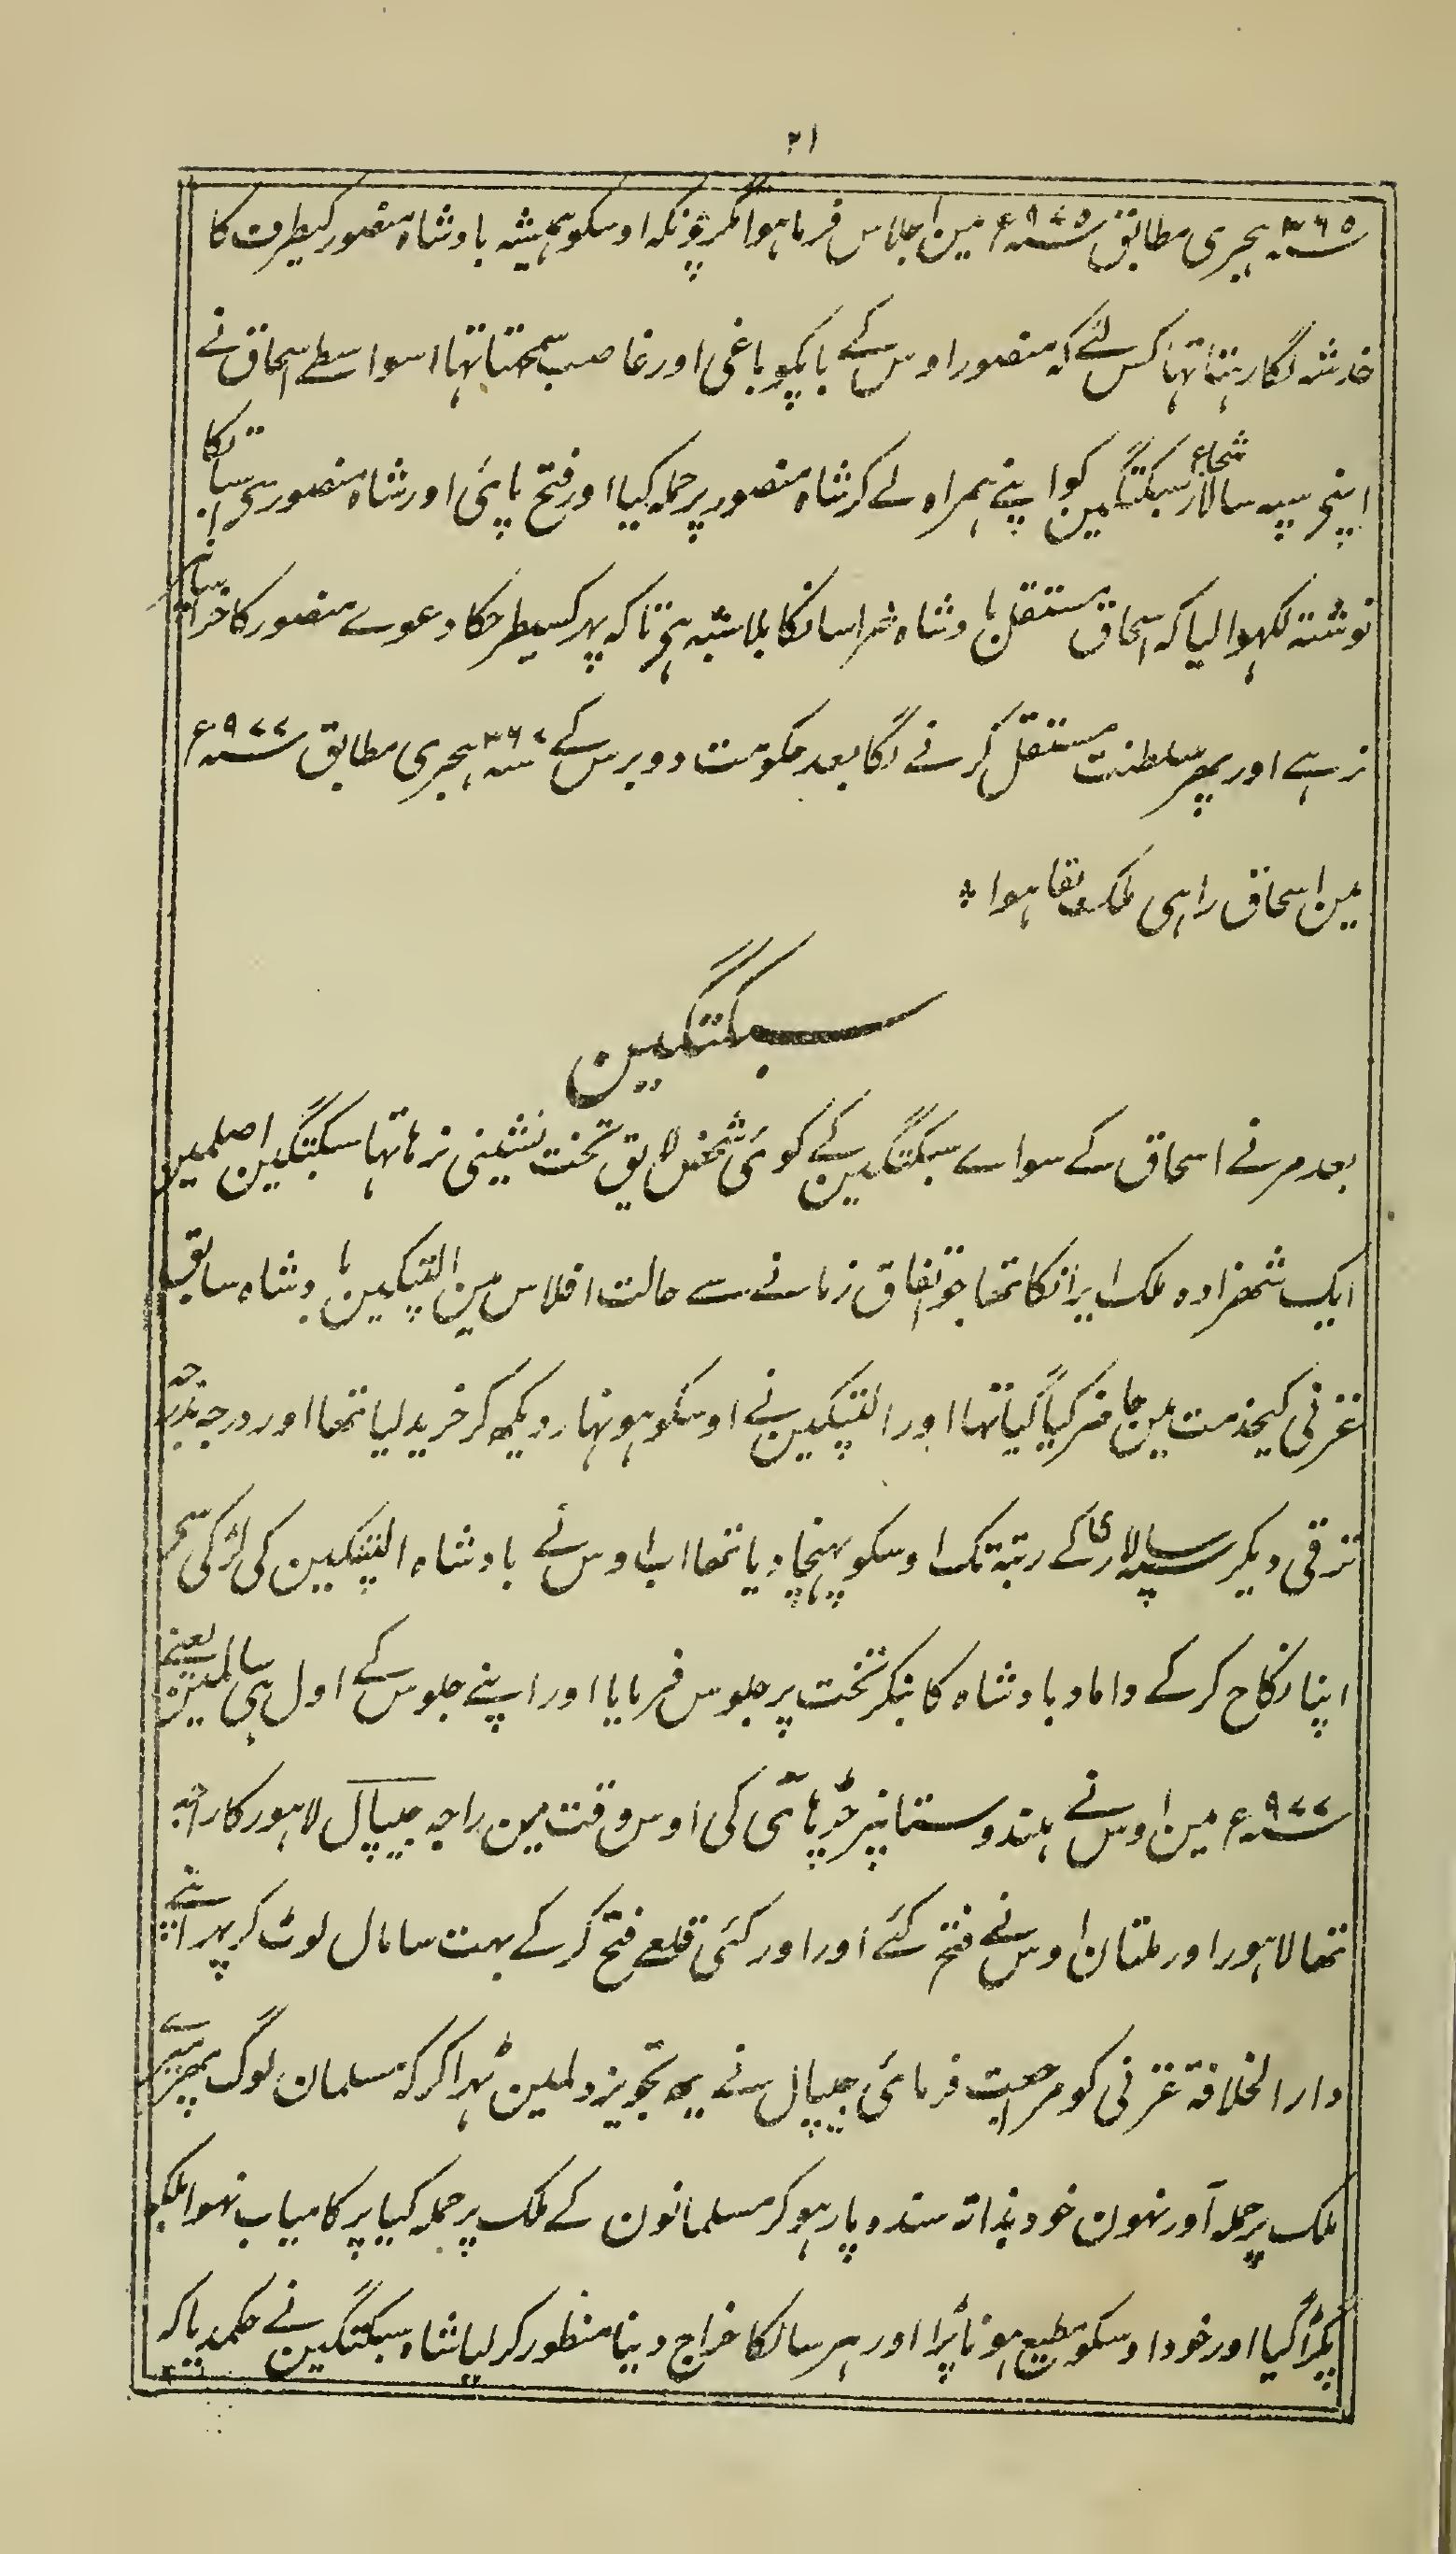 ۲۱
۳۶۵ سنہ ہجری مطابق ۹۷۵ سنہ ء مین اجلاس فرما ہوا مگر چونکہ اوسکو ہمیشہ بادشاہ منصور کیطرف کا
خدشہ لگا رہتا تھا کس لئے کہ منصور اوس کے باپکو باغی اور غاصب سمجھتا تھا اسواسطے اسحاق نے
اپنی سپہ سالار شجاع سبکتگین کو اپنے ہمراہ لے کر شاہ منصور پر حملہ کیا اور فتح پائی اور شاہ منصور سی اسباتکا
نوشتہ لکھوا لیا کہ اسحاق مستقل بادشاہ خراسانکا بلا شبہ ہی تاکہ پہر کسیطرحکا دعوے منصور کا خراسانپر
نرہے اور پھر سلطنت مستقل کرنے لگا بعد حکومت دو برس کے ۳۶۷ سنہ ہجری مطابق ۹۷۷ سنہ ء
مین اسحاق راہی ملک بقا ہوا ٭
سبکتگین
بعد مرنے اسحاق کے سواے سبکتگین کے کوئی شخص لایق تخت نشینی نرہا تہا سبکتگین اصلمین
ایک شھزادہ ملک ایرانکا تھا جو اتفاق زمانے سے حالت افلاس مین الپتگین بادشاہ سابق
غزنی کیخدمت مین حاضر کیا گیا تہا اور الپتگین نے اوسکو ہونہار دیکھ کر خرید لیا تھا اور درجہ بدرجہ
ترقی دیکر سپہ سالاری کے رتبہ تک اوسکو پہنچا دیا تھا اب اوس نے بادشاہ الپتگین کی لڑکی سی
اپنا نکاح کر کے داماد بادشاہ کا بنکر تخت پر جلوس فرمایا اور اپنے جلوس کے اول ہی سالمین یعنے
۹۷۷ سنہ ء مین اوس نے ہندوستانپر چڑہائی کی اوس وقت مین راجہ جیپال لاہور کا راجہ
تھا لاہور اور ملتان اوس نے فتح کئے اور اور کئی قلعے فتح کر کے بہت سا مال لوٹ کر پہر اپنے
دار الخلافۃ غزنی کو مرجعیت فرمائی جیپال نے یہ تجویز دلمین ٹہرا کر کہ مسلمان لوگ پھر میرے
ملک پر حملہ آور نہون خود بذاتہ سندہ پار ہو کر مسلمانون کے ملک پر حملہ کیا پر کامیاب نہوا بلکہ
پکڑا گیا اور خود اوسکو مطیع ہونا پڑا اور ہر سالکا خراج دینا منظور کر لیا شاہ سبکتگین نے حکمدیا کہ